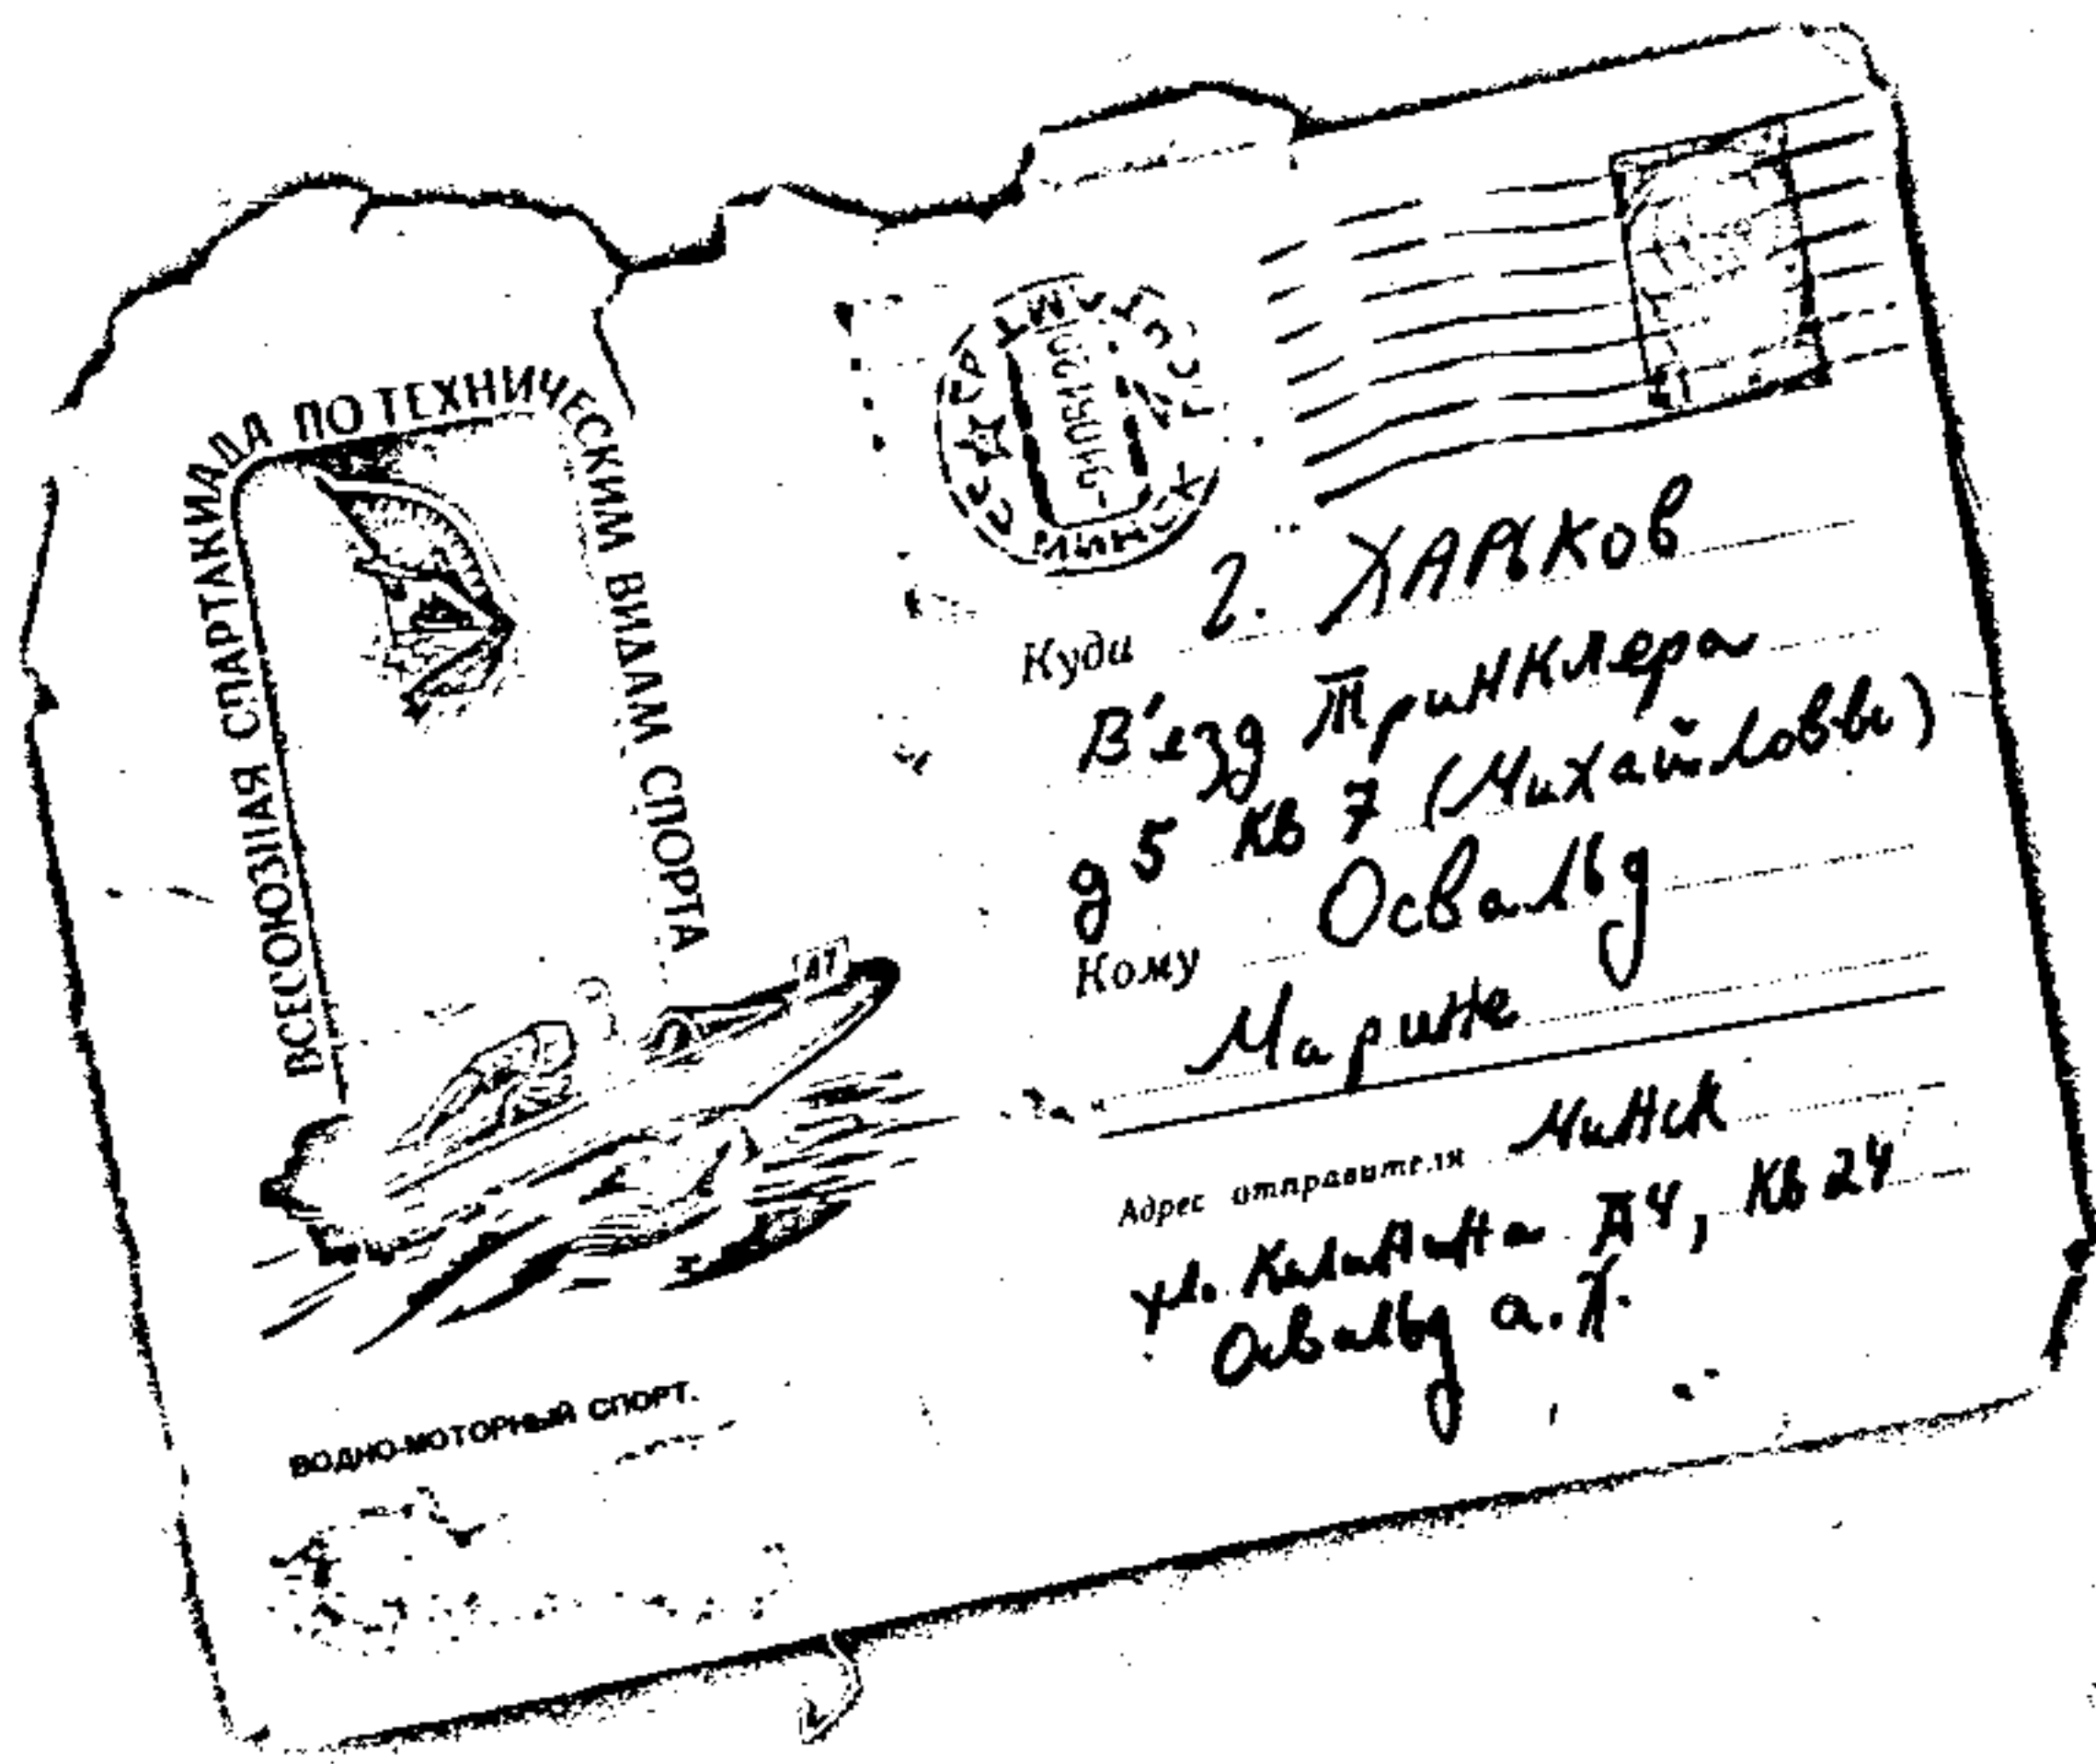 ВСЕСОЮЗНАЯ СПАРТАКИАДА ПО ТЕХНИЧЕСКИМ ВИДАМ СПОРТА
ВОДНО-МОТОРНЫЙ СПОРТ.
СССР
МИНСК
Куда г. ХАРЬКОВ
В'езд Тринклера
д 5 кв 7 (Михайловы)
Кому Освальд
Марине
Адрес отправителя Минск
ул. Калинина Д4, кв 24
Освальд а. Х.